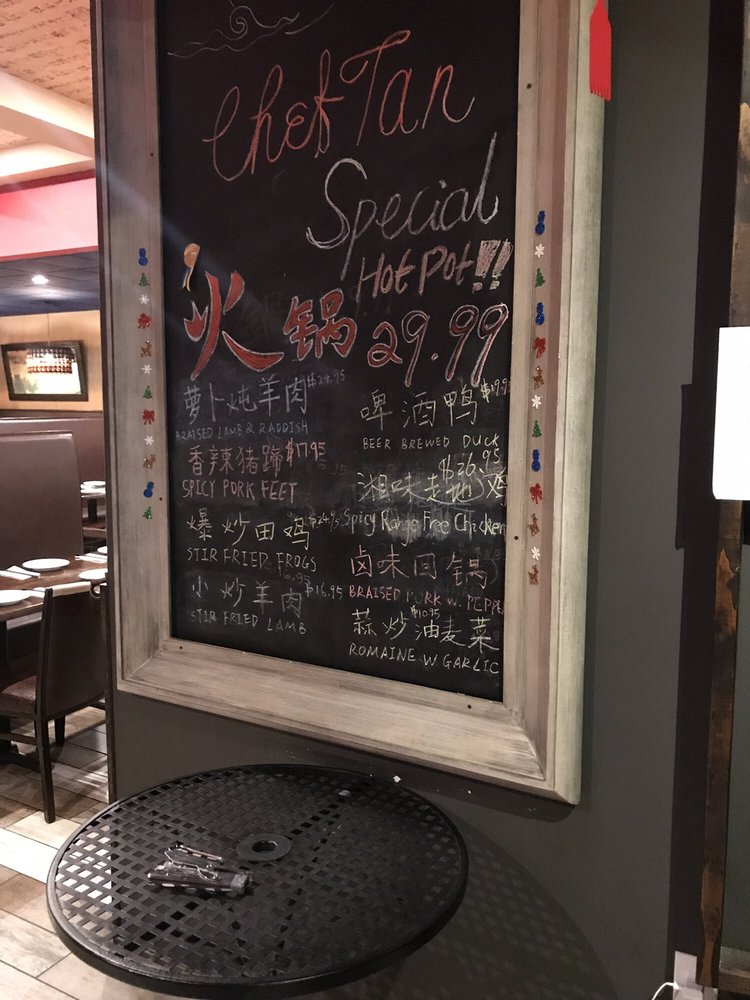 Chef Tan
Special
Hot Pot!!
火锅 29.99
萝卜炖羊肉 $24.95
BRAISED LAMB & RADDISH
香辣猪蹄 $17.95
SPICY PORK FEET
爆炒田鸡
STIR FRIED FROGS
小炒羊肉 $16.95
STIR FRIED LAMB
啤酒鸭
BEER BREWED DUCK
$26.95
湘味走地鸡
Spicy Range Free Chicken
卤味回锅
BRAISED PORK W. PEPPE
$10.95
蒜炒油麦菜
ROMAINE W GARLIC